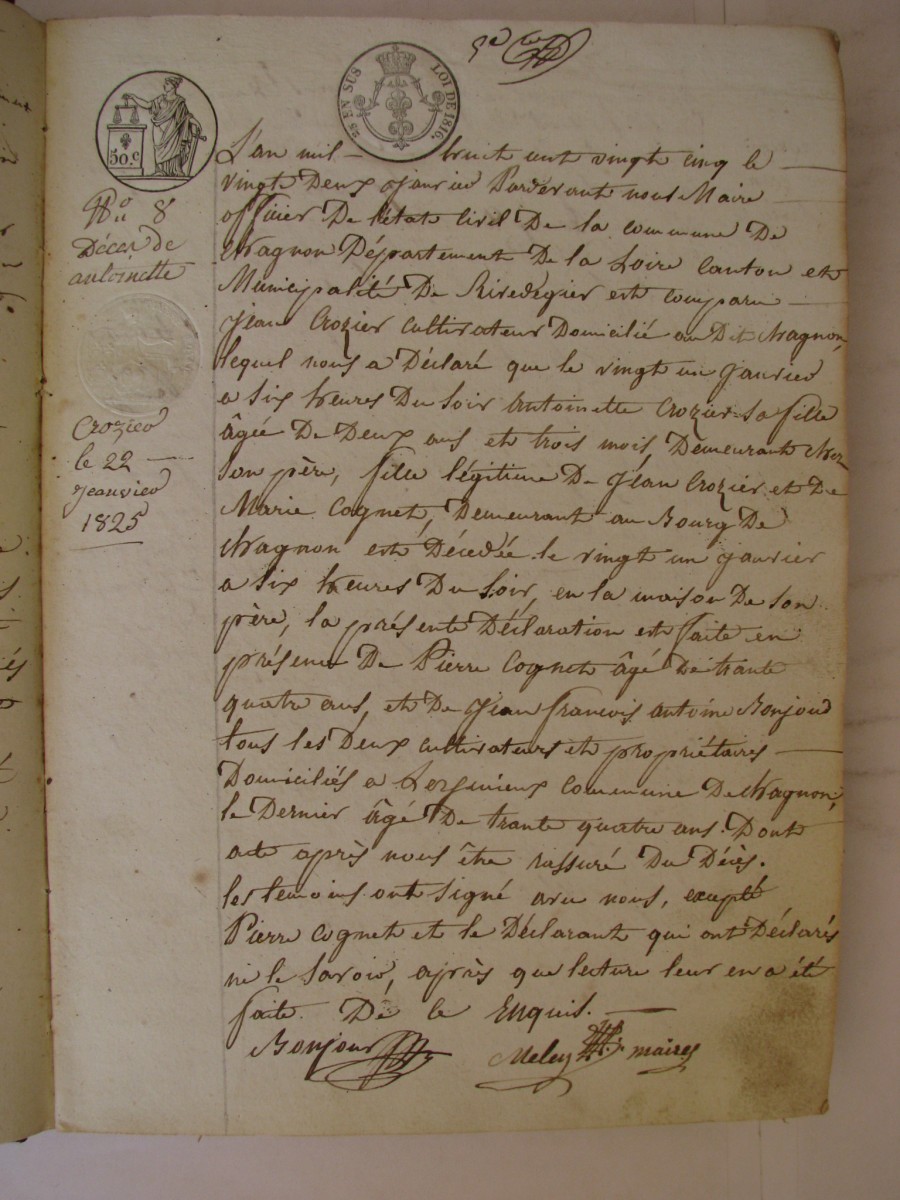 28 EN SUS
LOI DE 1816.
50.c
No 8
Décès de
antoinette
Crozier
le 22
Jeanvier
1825
L'an mil huit cent vingt cinq le
vingt Deux Janvier Pardevant nous Maire
officier De l'état Civil De la commune De
Chagnon Département De la Loire Canton et
Municipalité De Rivedegier est comparu
Jean Crozier cultivateur Domicilié au Dit Chagnon,
lequel nous a Déclaré que le vingt un Janvier
a six heures Du Soir Antoinette Crozier Sa fille
âgée De Deux ans et trois mois, Demeurant chez
Son père, fille légitime De Jean Crozier et De
Marie Cognet, Demeurant au Bourg De
Chagnon est Décédée le vingt un Janvier
a Six heures Du Soir, en la maison De son
père, la présente Déclaration est faite en
présence De Pierre Cognet âgé De trante
quatre ans, et De Jean francois antoine Bonjour
tous les Deux cultivateurs et propriétaires
Domiciliés a Commune De Chagnon,
le Dernier âgé De trante quatre ans. Dont
acte après nous être rassuré Du Décès.
les temoins ont Signé avec nous, excepté
Pierre Cognet et le Déclarant qui ont Déclarés
ne le Savoir, après que lecture leur en a été
faite. De ce Enquis.
Bonjour Meley maire